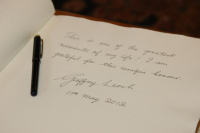 This is one of the greatest
moments of my life! I am
grateful for this unique honour
Geoffrey Leech
17th May 2012